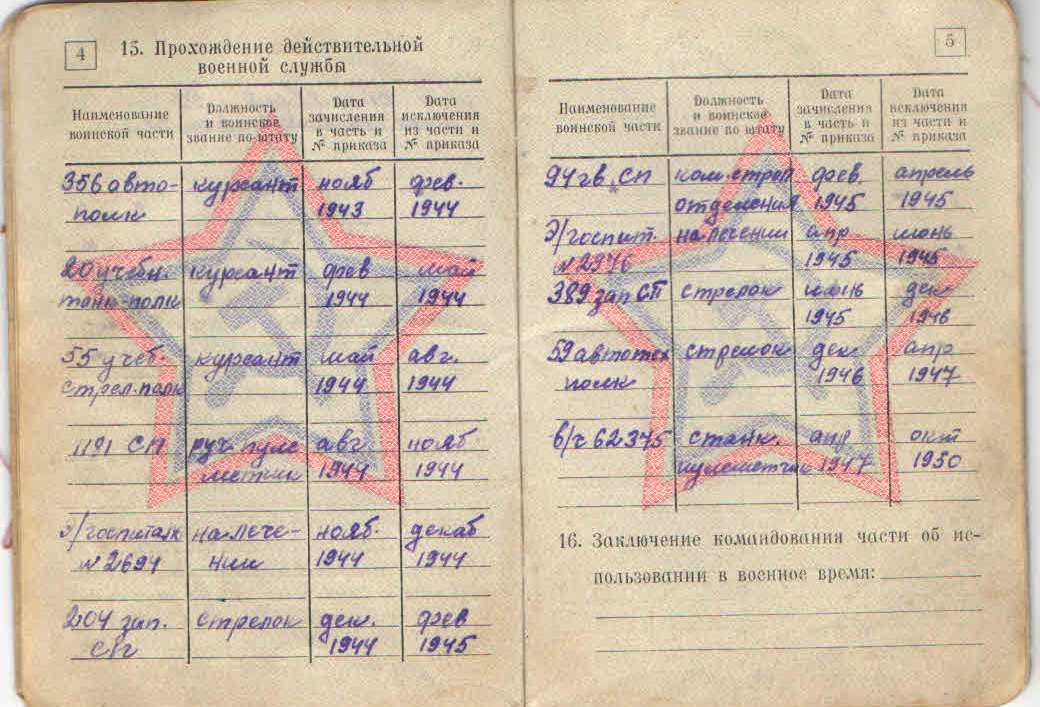 4
15. Прохождение действительной
военной службы
Наименование
воинской части
Должность
и воинское
звание по штату
Дата
зачисления
в часть и
№ приказа
Дата
исключения
из части и
№ приказа
356 авто- курсант нояб фев.
полк 1943 1944
20 учебн. курсант фев май
танк-полк 1944 1944
55 учеб. курсант май авг.
стрел-полк 1944 1944
1191 СП руч пуле авг нояб.
метчик 1944 1944
Э/госпиталь на лече- нояб. декаб
№ 2694 нии 1944 1944
204 зап. стрелок дек. фев
1944 1945
5
Наименование
воинской части
Должность
и воинское
звание по штату
Дата
зачисления
в часть и
№ приказа
Дата
исключения
из части и
№ приказа
94 гв. СП ком. стрел фев. апрель
отделения 1945 1945
Э/госпит. на лечении апр июнь
№ 2976 1945 1945
389 зап СП стрелок июнь дек
1945 1946
59 автотех стрелок дек апр
полк 1946 1947
в/ч 62375 станк. апр окт
пулеметчик 1947 1950
16. Заключение командования части об ис-
пользовании в военное время: